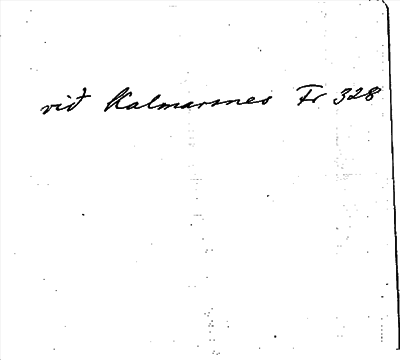 við Kalmarsnes Fr 328